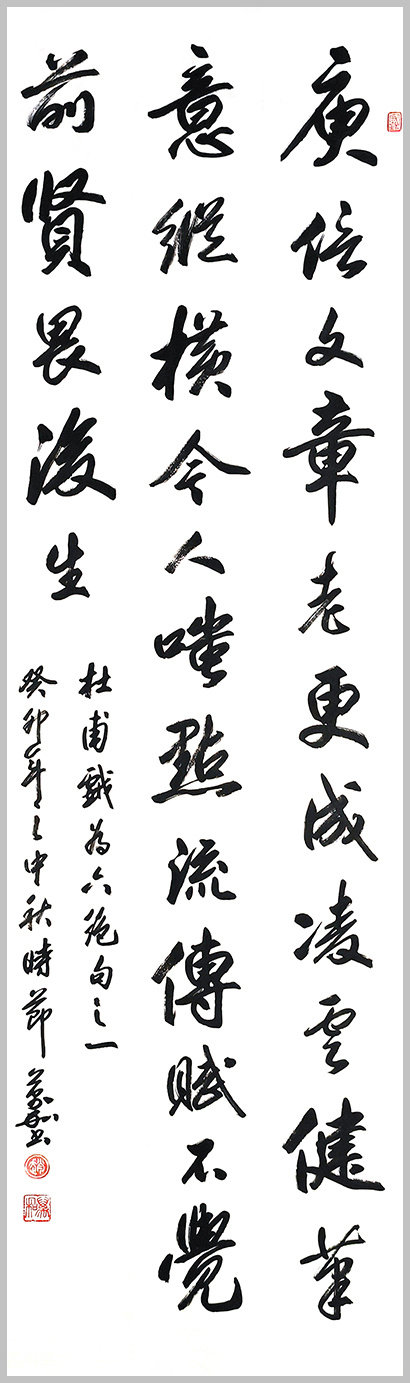 庾信文章老更成凌雲健筆
意縱橫今人嗤點流傳賦不覺
前賢畏後生
杜甫戲為六絕句之一
癸卯年之中秋時節